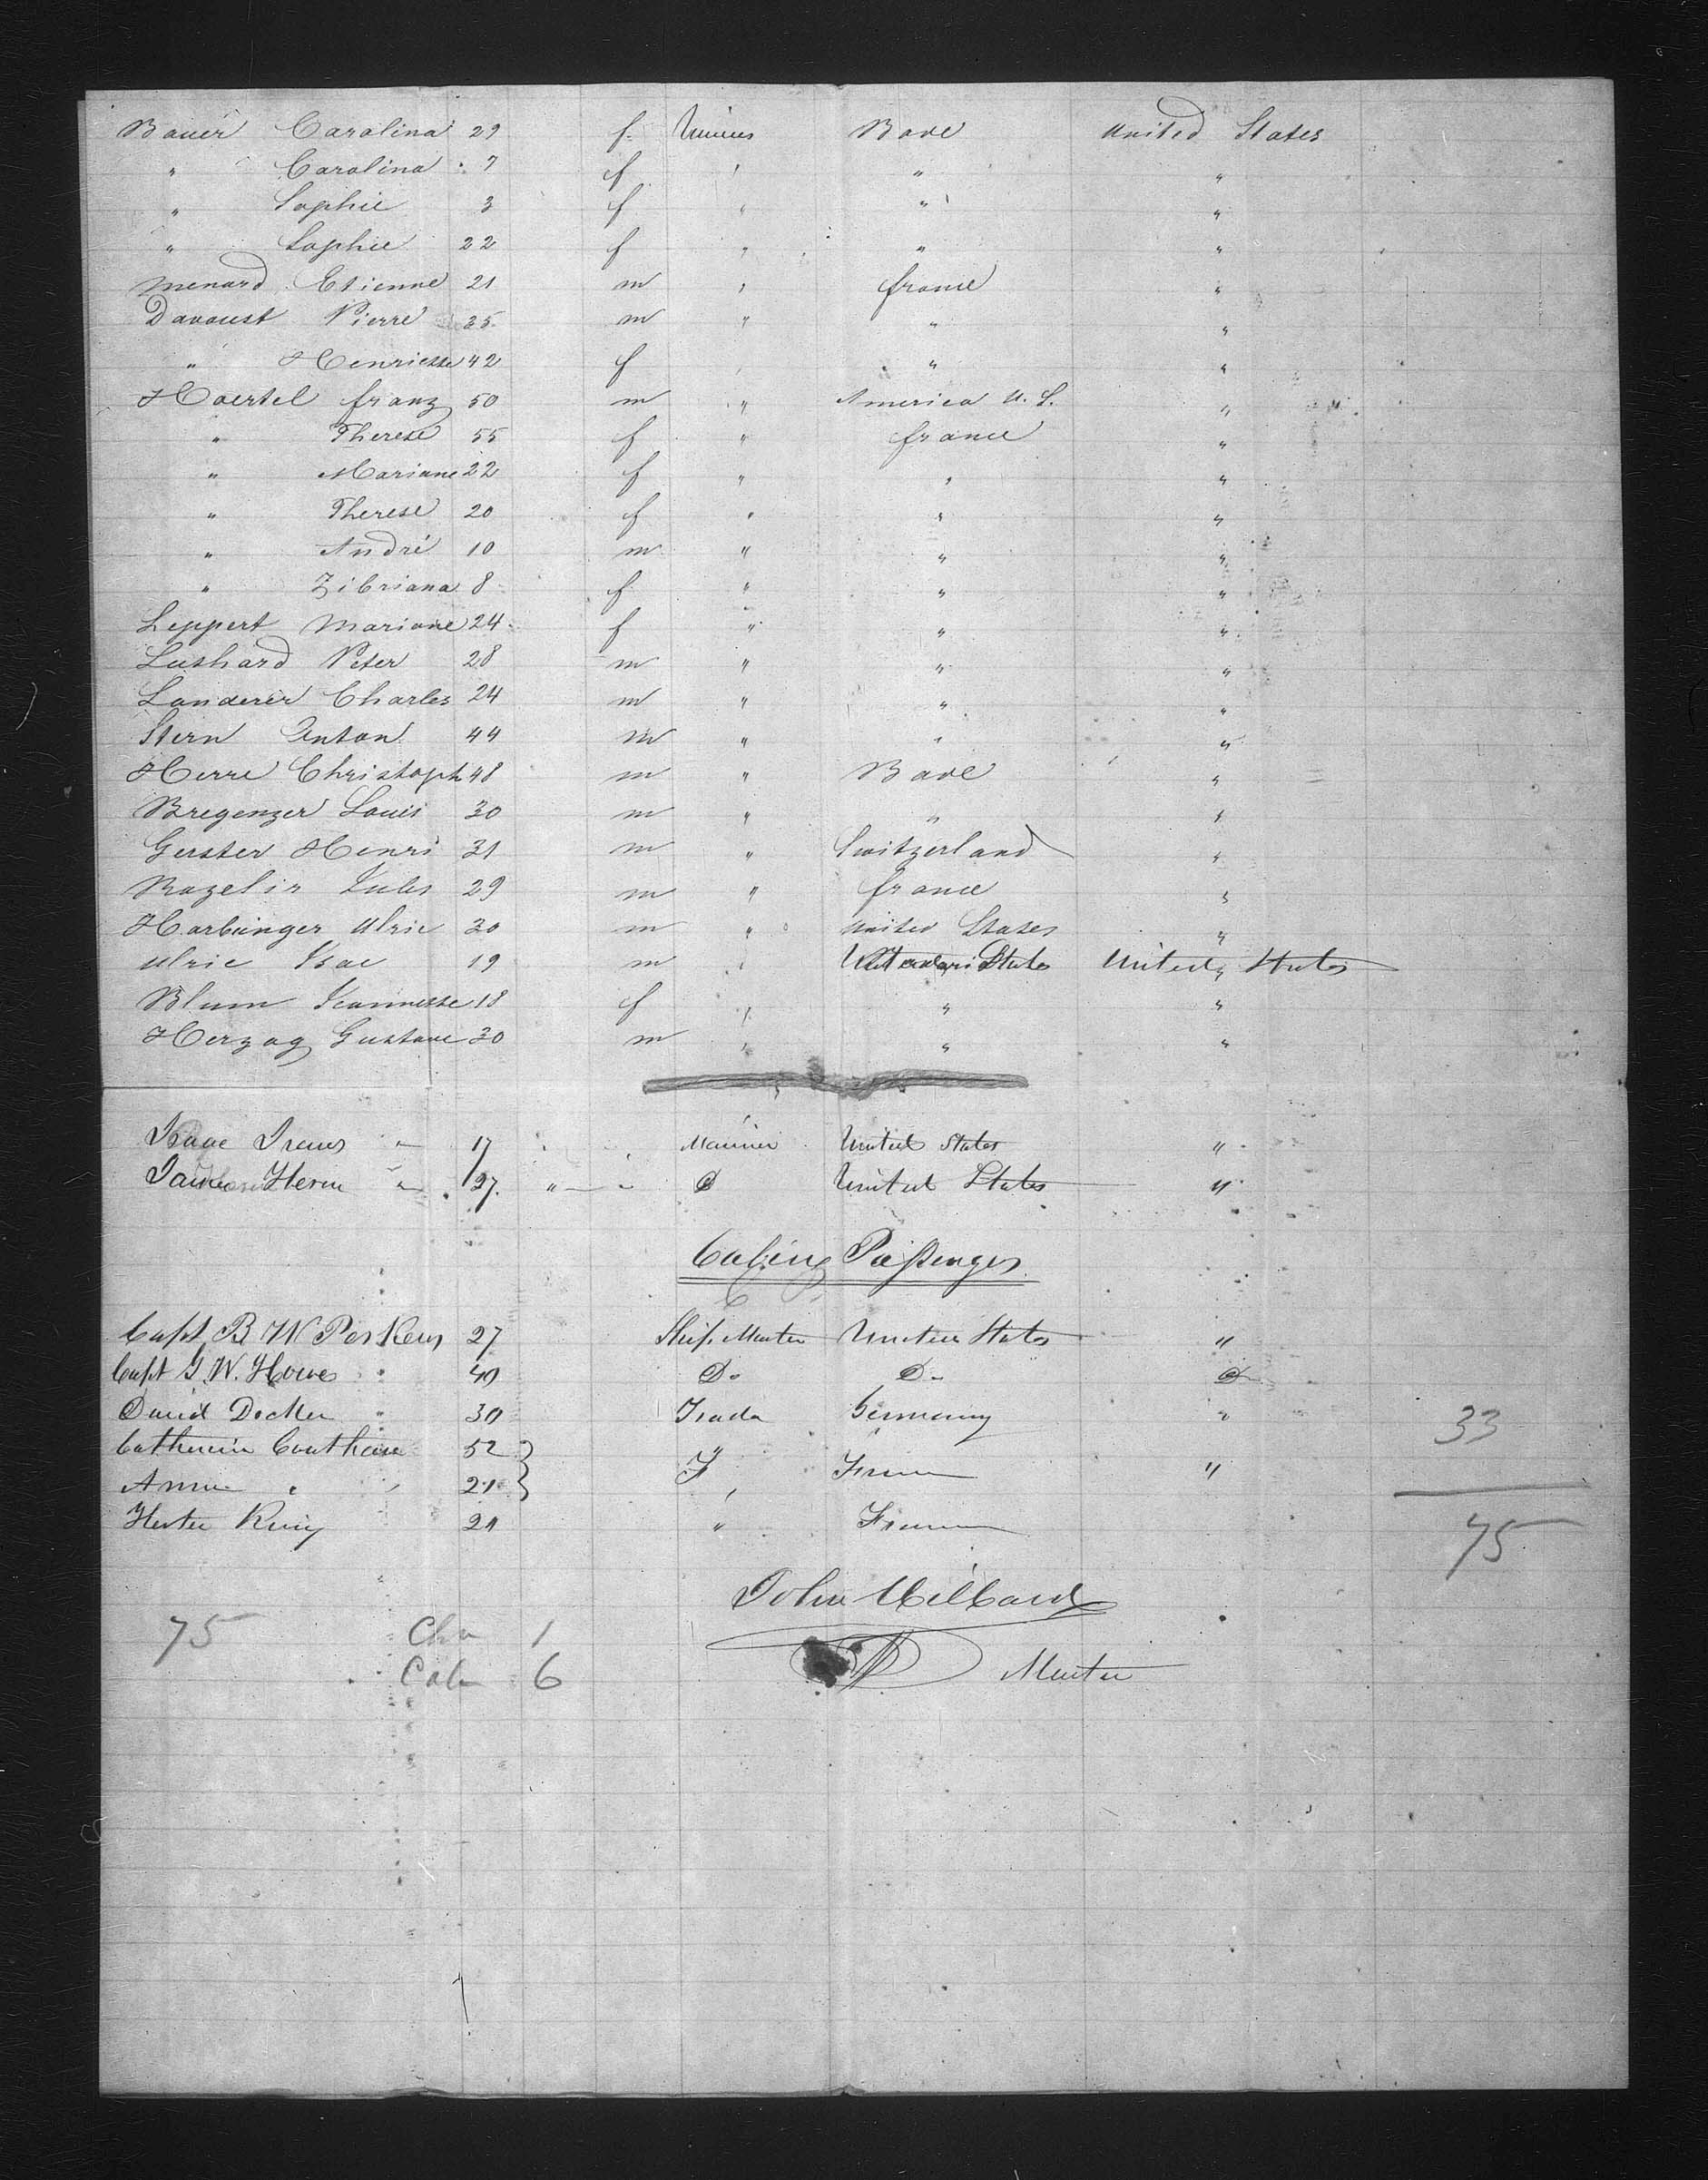 Bauer Carolina 29 f. Bade United States
" Carolina 7 f " " "
" Sophie 3 f " " "
" Sophie 22 f " " "
Menard Etienne 21 m " france "
Davoust Pierre 35 m " " "
" Henriette 42 f " " "
Haertel franz 50 m " America U. S. "
" Therese 55 f " france "
" Mariane 22 f " " "
" Therese 20 f " " "
" André 10 m " " "
" Zibriana 8 f " " "
Leppert Mariane 24 f " " "
Lushard Peter 28 m " " "
Landerer Charles 24 m " " "
Stern Anton 44 m " " "
Herre Christoph 48 m " Bade "
Bregenzer Louis 30 m " " "
Gerster Henri 31 m " Switzerland "
Rozelir Jules 29 m " france "
Harbinger Ulric 30 m " United States "
Ulric Isac 19 m " States United States
Blum Jeannette 18 f " " "
Herzog Gustave 30 m " " "
Isaac 17 Mariner United States "
27. " D United States "
Cabin Passengers
Capt B W Perkins 27 Ship Master United States "
Capt G. W. Howes 40 Do Do Do
David Decker 30 Germany "
33
Catherine 52 F France "
Anna " 21 "
75
Hester 21 " France
John Hilbard
75 Chn 1
Cab 6 Master